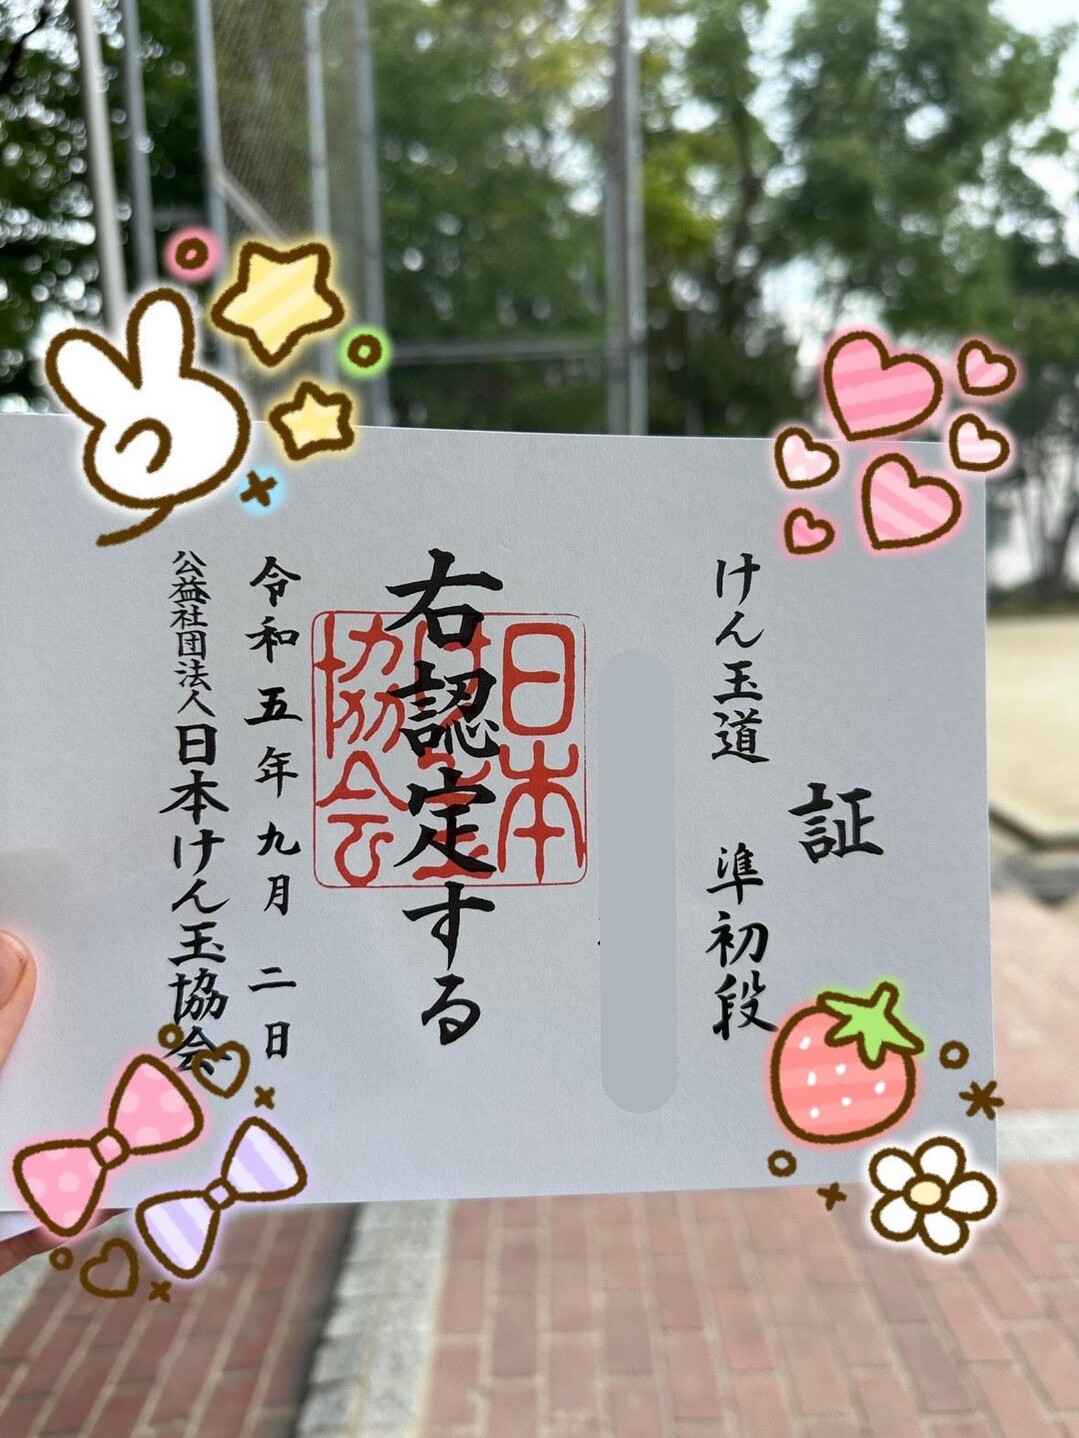 証
けん玉道 準初段
右認定する
日本
けん玉
協会
令和五年九月二日
公益社団法人日本けん玉協会